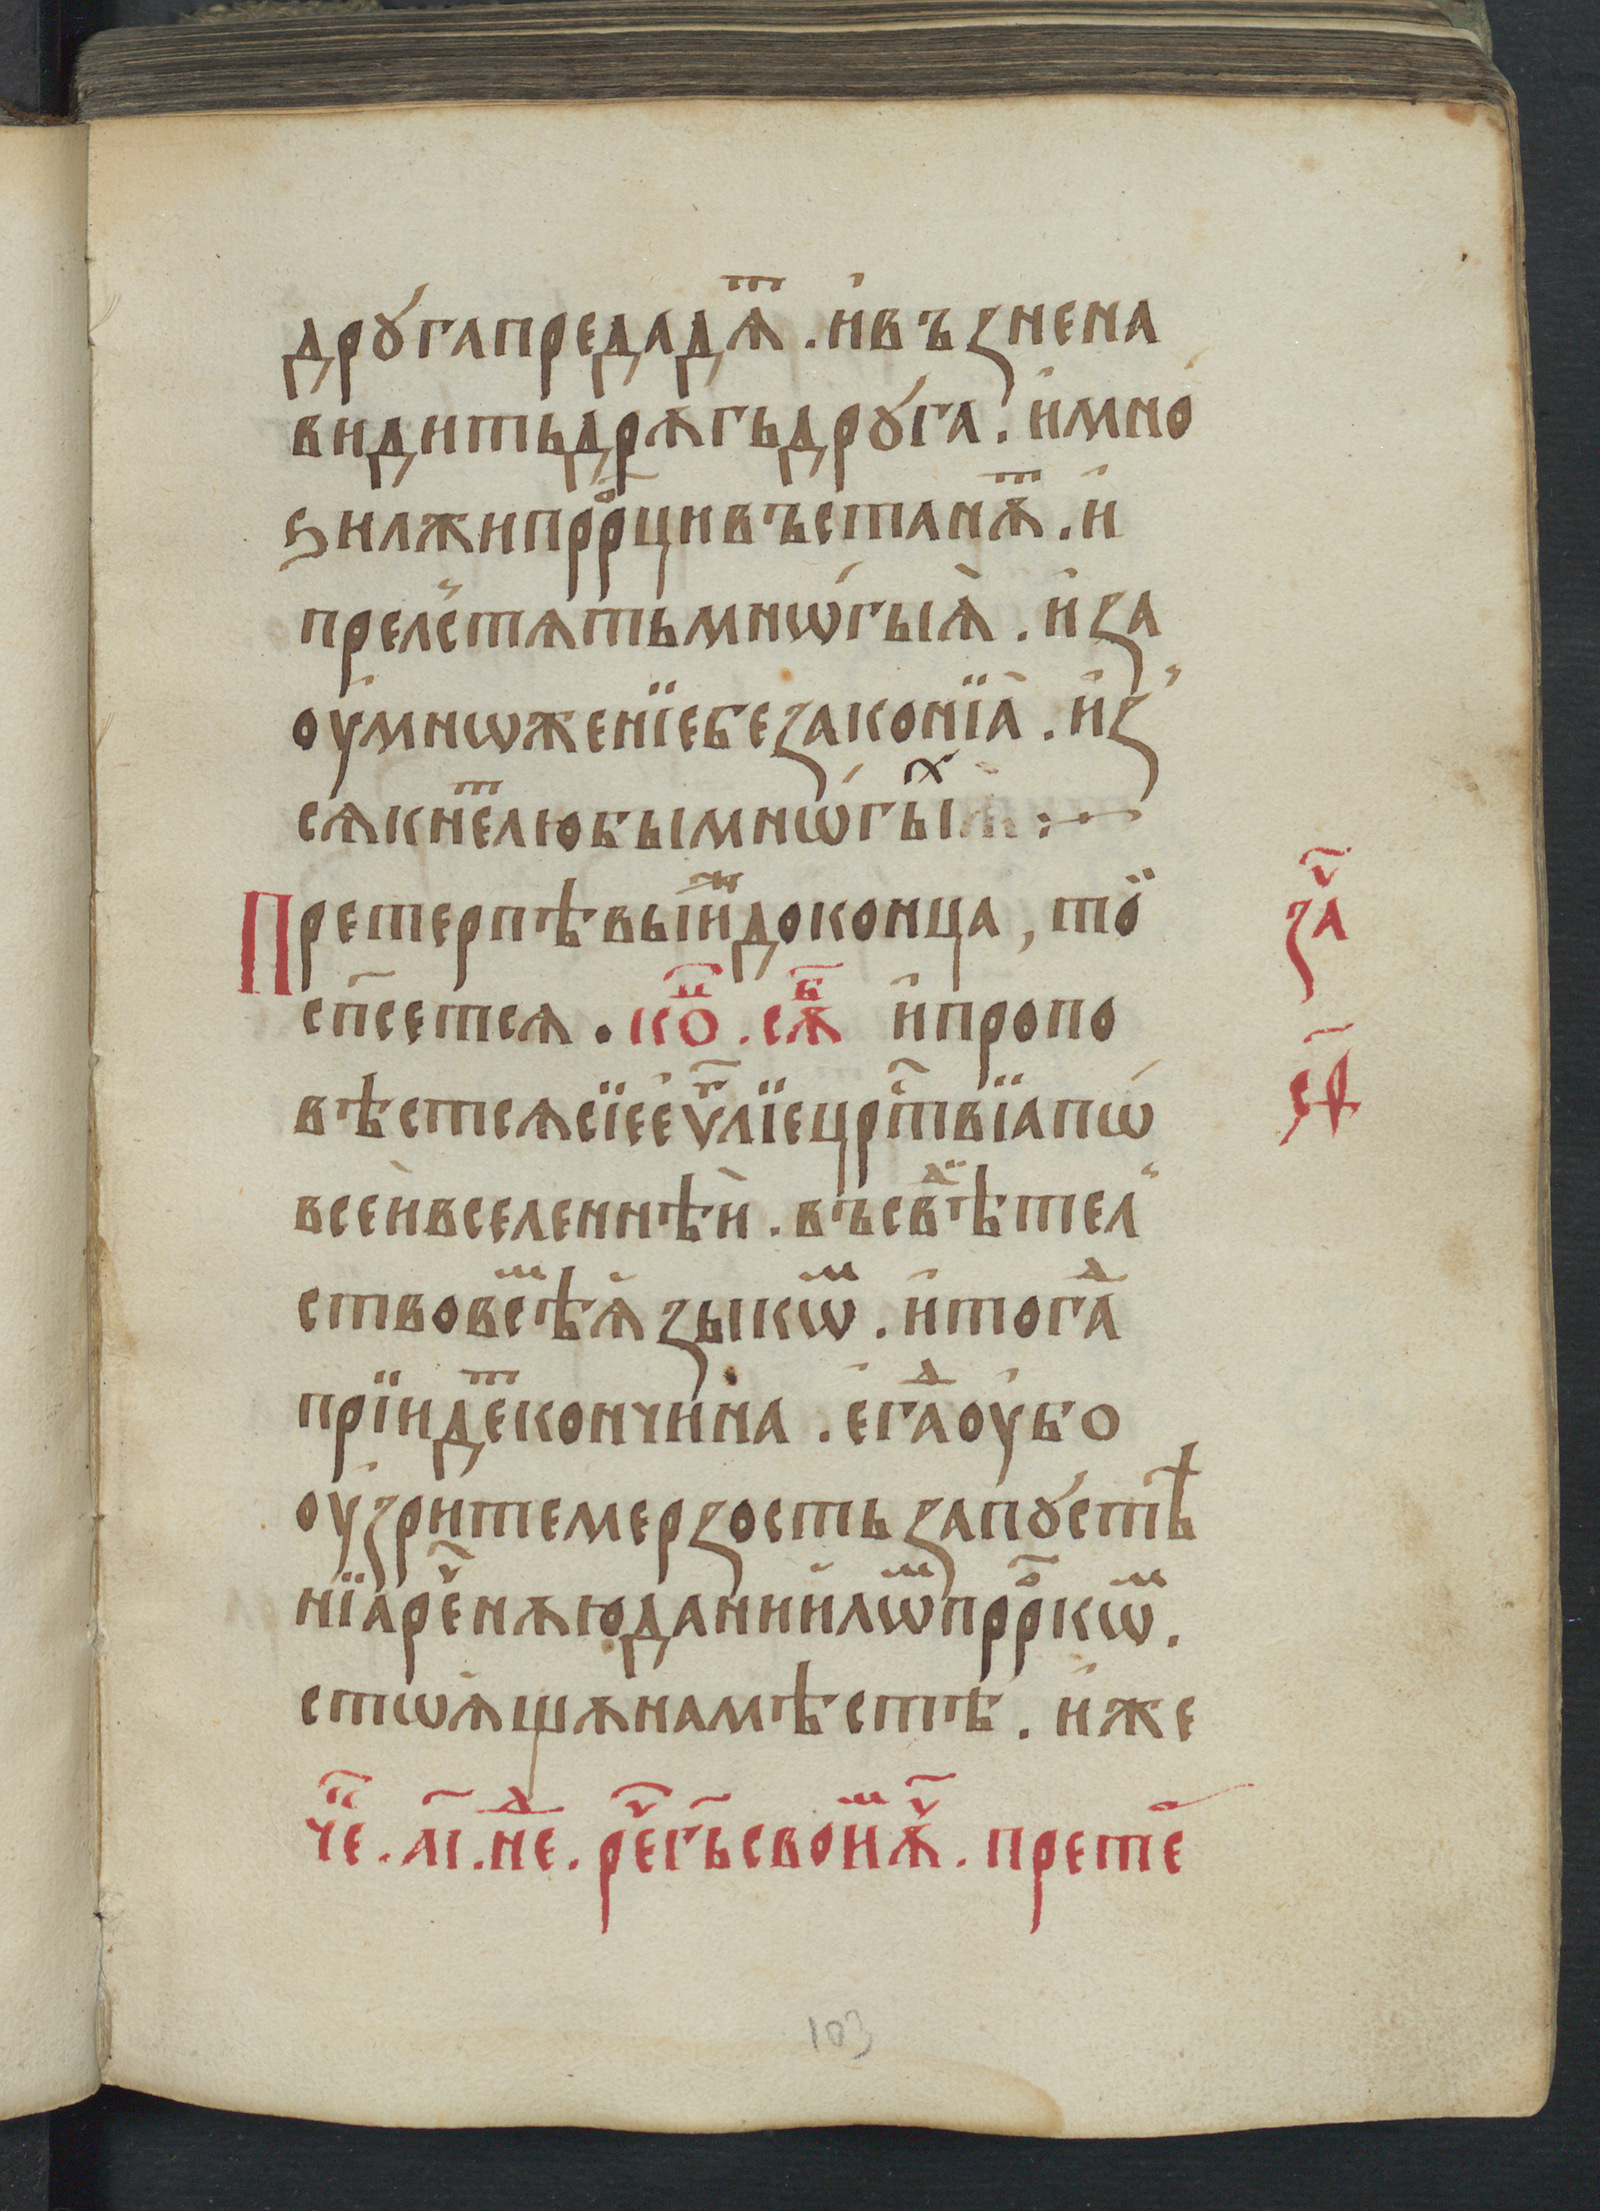 дрꙋ́гапредадѧⷮ . и҆въꙁнена
видитьдрѫгьдрꙋ́га . и҆мно́
ѕилжипрⷪ҇рцивъстанѫⷮ . и҆
прел̾стѧтьмнѡ́гыѧ̀ . и҆ꙁа
оу҆мнѡженїебеꙁаконїа̀ . и҆ꙁ̾
сѧкнеⷮлюбымнѡ́гыⷯ :·
Претерпѣвыиⷤдоконца , то̏
сп҃сетсѧ . коⷩ҇ . сѫⷠ҇ и҆пропо
вѣстсѧсїее҆ѵⷢ҇лїецрⷭ҇твїапѡ́
всеѝвселеннѣѝ . въсвⷣѣтел̾
ствовⷨсѣѧ҆ꙁыкѡⷨ . и҆тогаⷣ
прїидеⷮкончина . е҆гаⷣоу҆бо
оу҆ꙁритемерꙁостьꙁапꙋ́стѣ
нїареⷱ҇нѫюданїи́лѡⷨпрⷪ҇ркѡⷨ .
стѡѧ҆щѫнамѣстѣ . и҆же
ꙁаⷱ҇
с҃ѯ
чеⷮ . а҃і . неⷣ . реⷱ҇гьсвоиⷨѫⷱ҇ . прете
103